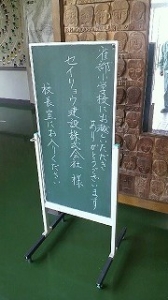 府部小学校にお越しいただき
ありがとうございます
セイリョウ建設株式会社 様
校長室にお入りください